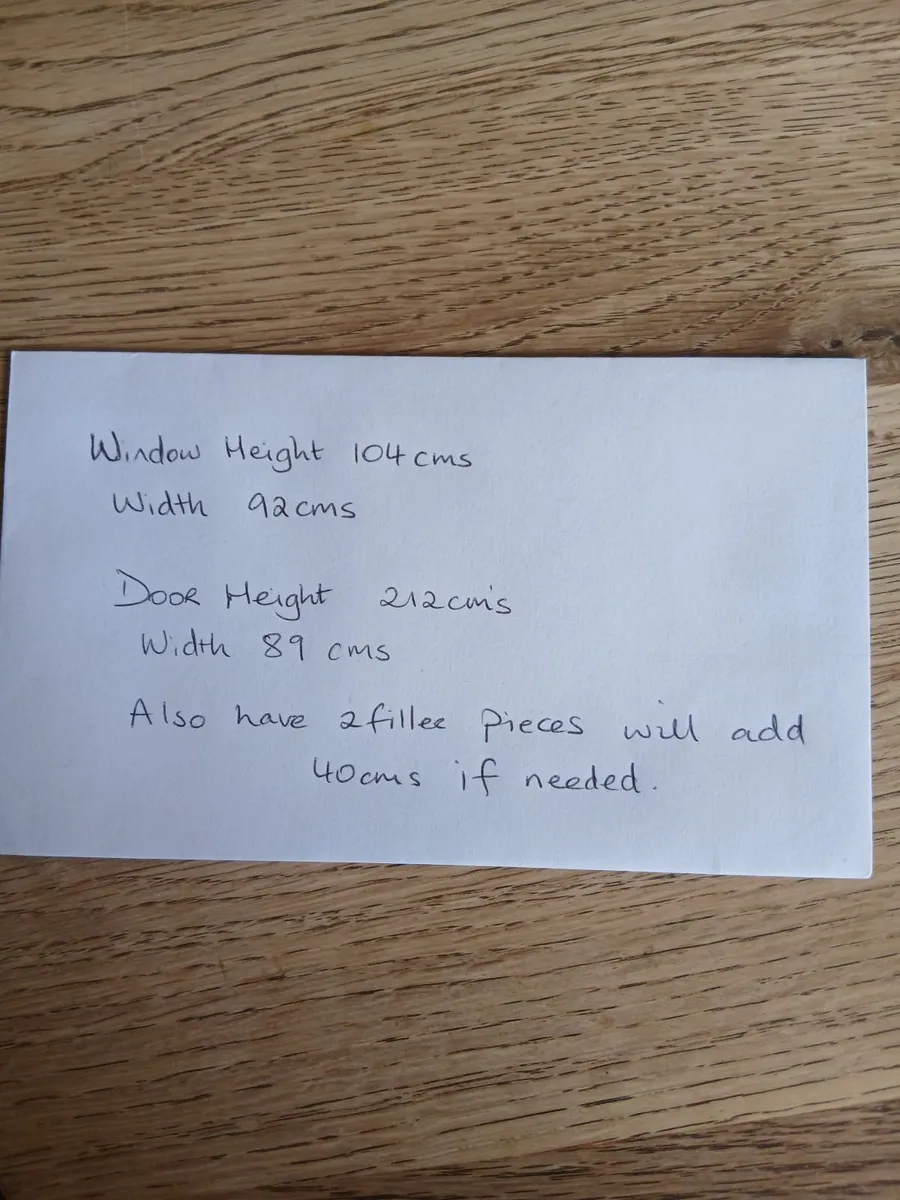 Window Height 104cms
Width 92cms
Door Height 212cm's
Width 89 cms
Also have 2 filler pieces will add
40cms if needed.